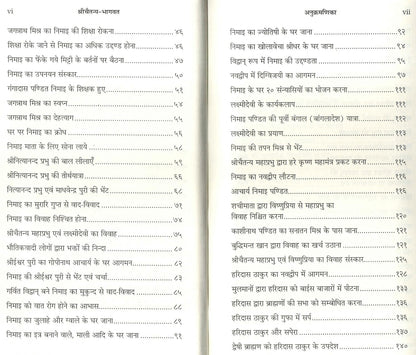 vi श्रीचैतन्य-भागवत
जगन्नाथ मिश्र का निमाइ की शिक्षा रोकना ४६
शिक्षा रोके जाने से निमाइ का अधिक उद्दण्ड होना ४६
निमाइ का फेंके गये मिट्टी के बर्तनों पर बैठना ४७
निमाइ का उपनयन संस्कार ५०
गंगादास पण्डित निमाइ के शिक्षक हुए ५१
जगन्नाथ मिश्र का स्वप्न ५२
जगन्नाथ मिश्र का देहत्याग ५३
घर पर निमाइ का क्रोध ५४
निमाइ माता के लिए सोना लाये ५५
श्रीनित्यानन्द प्रभु की बाल लीलाएँ ५८
श्रीनित्यानन्द प्रभु की तीर्थयात्रा ६५
नित्यानन्द प्रभु एवं माधवेन्द्र पुरी की भेंट ६८
निमाइ का मुरारि गुप्त से वाद-विवाद ७३
निमाइ का विवाह निश्चित होना ७५
श्रीचैतन्य महाप्रभु एवं लक्ष्मीदेवी का विवाह ७७
भौतिकवादी लोगों द्वारा भक्तों की निन्दा ७९
श्री ईश्वर पुरी का गोपीनाथ आचार्य के घर आगमन ८२
निमाइ की श्रीईश्वर पुरी से भेंट एवं चर्चा ८३
गर्वित विद्वान् बने निमाइ का मुकुन्द से वाद-विवाद ८५
निमाइ को वात रोग होने का आभास ८८
निमाइ का जुलाहे और ग्वाले के घर जाना ९०
निमाइ का इत्र बनाने वाले, माली आदि के घर जाना ९१
अनुक्रमणिका vii
निमाइ का ज्योतिषी के घर जाना ९२
निमाइ का खोलावेचा श्रीधर के घर जाना ९४
विद्वान् रूप में निमाइ की उद्दण्डता ९९
नवद्वीप में दिग्विजयी का आगमन १००
निमाइ के घर २० संन्यासियों का भोजन करना ११०
लक्ष्मीदेवी के कार्यकलाप १११
निमाइ पण्डित की पूर्वी बंगाल (बांग्लादेश) यात्रा ११३
लक्ष्मीदेवी का प्रयाण ११३
निमाइ की तपन मिश्र से भेंट ११५
श्रीचैतन्य महाप्रभु द्वारा हरे कृष्ण महामंत्र प्रकट करना ११५
निमाइ का नवद्वीप लौटना ११६
आचार्य निमाइ पण्डित ११८
शचीमाता द्वारा विष्णुप्रिया से महाप्रभु का
विवाह निश्चित करना १२०
काशीनाथ पण्डित का सनातन मिश्र के पास जाना १२१
बुद्धिमन्त खान द्वारा विवाह का खर्च उठाना १२१
श्रीचैतन्य महाप्रभु एवं विष्णुप्रिया का विवाह संस्कार १२५
हरिदास ठाकुर का नवद्वीप में आगमन १२८
मुसलमानों द्वारा हरिदास को बाईस बाजारों में पीटना १३१
हरिदास द्वारा ब्राह्मणों की सभा को सम्बोधित करना १३६
हरिदास ठाकुर की गुफा में सर्प १३७
हरिदास ठाकुर और सपेरा १३८
द्वेषी ब्राह्मण को हरिदास ठाकुर के उपदेश १४०